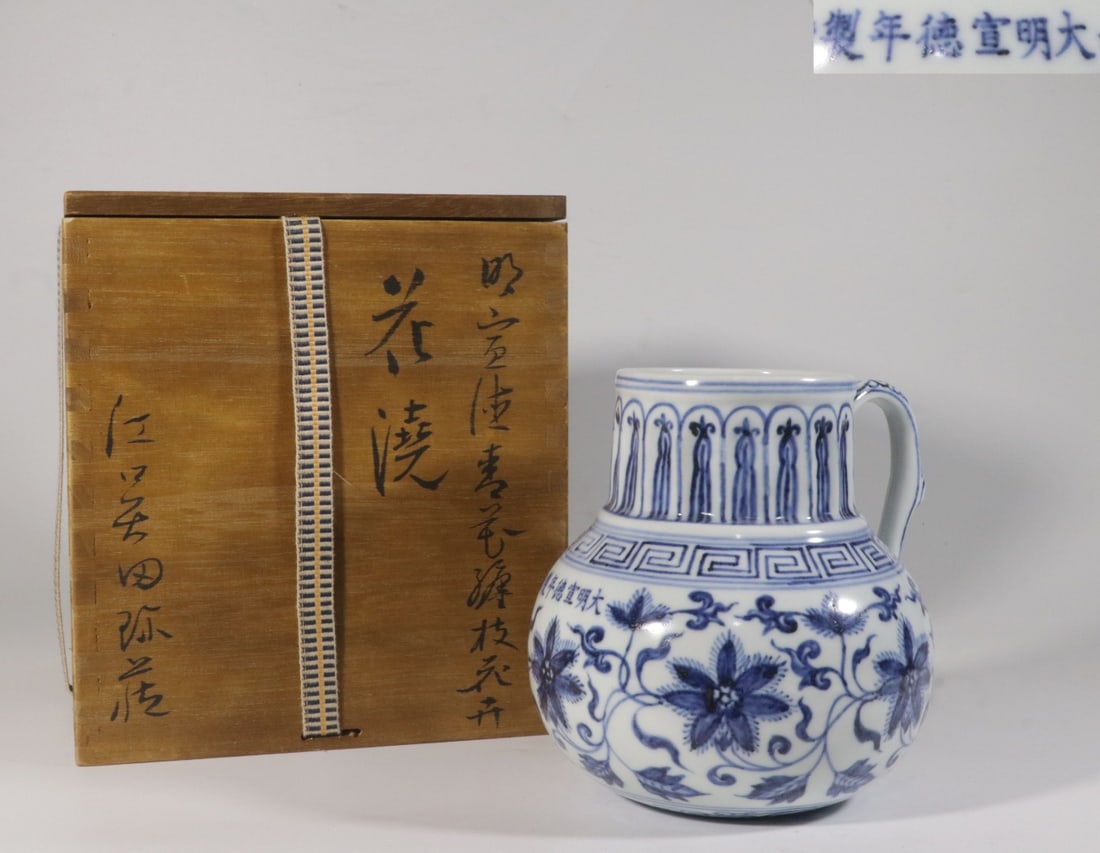 大明宣德年製
明宣德青花纏枝花卉
花澆
江口吴田珎藏
大明宣德年製